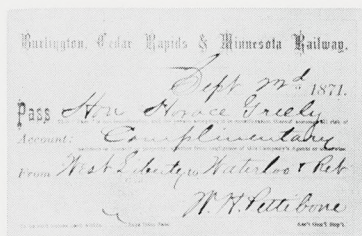 Burlington, Cedar Rapids & Minnesota Railway.
Sept 22d 1871.
Pass Hon Horace Greely
Account: Complimentary
From West Liberty to Waterloo & Ret
W. H. Pettibone
Gen'l Sup't.